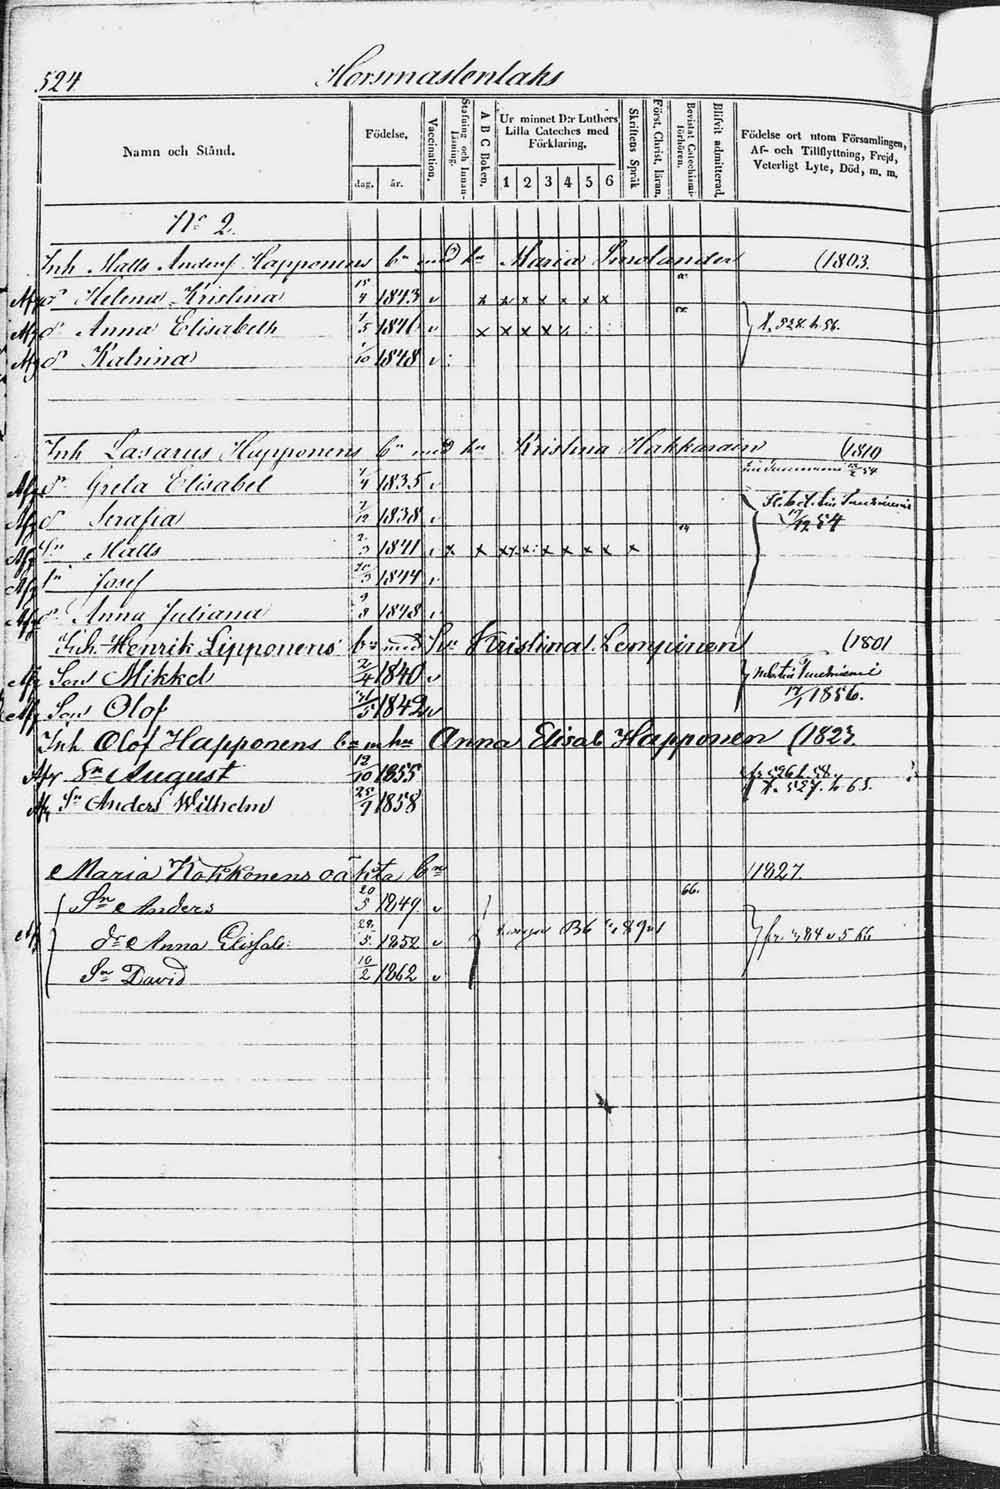 524 Horsmastenlaks
Namn och Stånd. Födelse, dag. år. Vaccination. Stafning och Innanläsning. A B C Boken. Ur minnet D:r Luthers Lilla Cateches med Förklaring. 1 2 3 4 5 6 Skriftens Språk Först. Christ. läran. Bevistat Catechismiförhören. Blifvit admitterad. Födelse ort utom Församlingen, Af- och Tillflyttning, Frejd, Veterligt Lyte, Död, m. m.
No 2.
Inh Matts Andersf Happonens bn med hu Maria Smolander (1803.
Afg dr Helena Kristina 15/4 1843 v x x x x x x x
Afg dr Anna Elisabeth 1/5 1846 v x x x x x
fl. 528. h 56.
Afg dr Katrina 1/10 1848 v
Inh Lasarus Happonens bn med hu Kristina Hakkarain (1810
Afg dr Greta Elisabet 1/4 1835 v
Afg dr Serafia 1/12 1838 v
17/12 54
Afg Sn Matts 2/3 1841 v x x x x x x x x x x
Afg Sn Josef 20/3 1844 v
Afg dr Anna Juliana 9/8 1848 v
Inh Henrik Lipponens bn med hu Kristina Lempinen (1801
Afg Son Mikkel 2/4 1840 v
Afg Son Olof 31/5 1842 v
17/1 1856.
Inh Olof Happonens bn m hu Anna Elisab Happonen (1823.
Afg Sn August 12/10 1855 fr 526 h. 58.
Afg Sn Anders Wilhelm 25/7 1858 fl. 527. h 63.
Maria Kokkonens oäkta bn 1827.
66.
Sn Anders 20/5 1849 v
Afg dr Anna Elisab: 29/5 1852 v
Sn David 10/2 1862 v